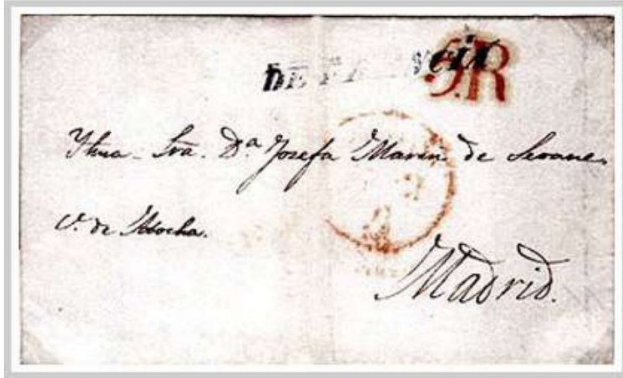 DE FRANCIA 5R
Ylma. Sra. Dª Josefa Marin de Seoane
C. de Atocha.
Madrid.